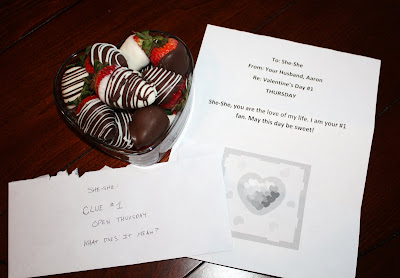 To: She-She
From: Your Husband, Aaron
Re: Valentine's Day #1
THURSDAY
She-She, you are the love of my life. I am your #1
fan. May this day be sweet!
SHE-SHE:
CLUE #1
OPEN THURSDAY
WHAT DOES IT MEAN?